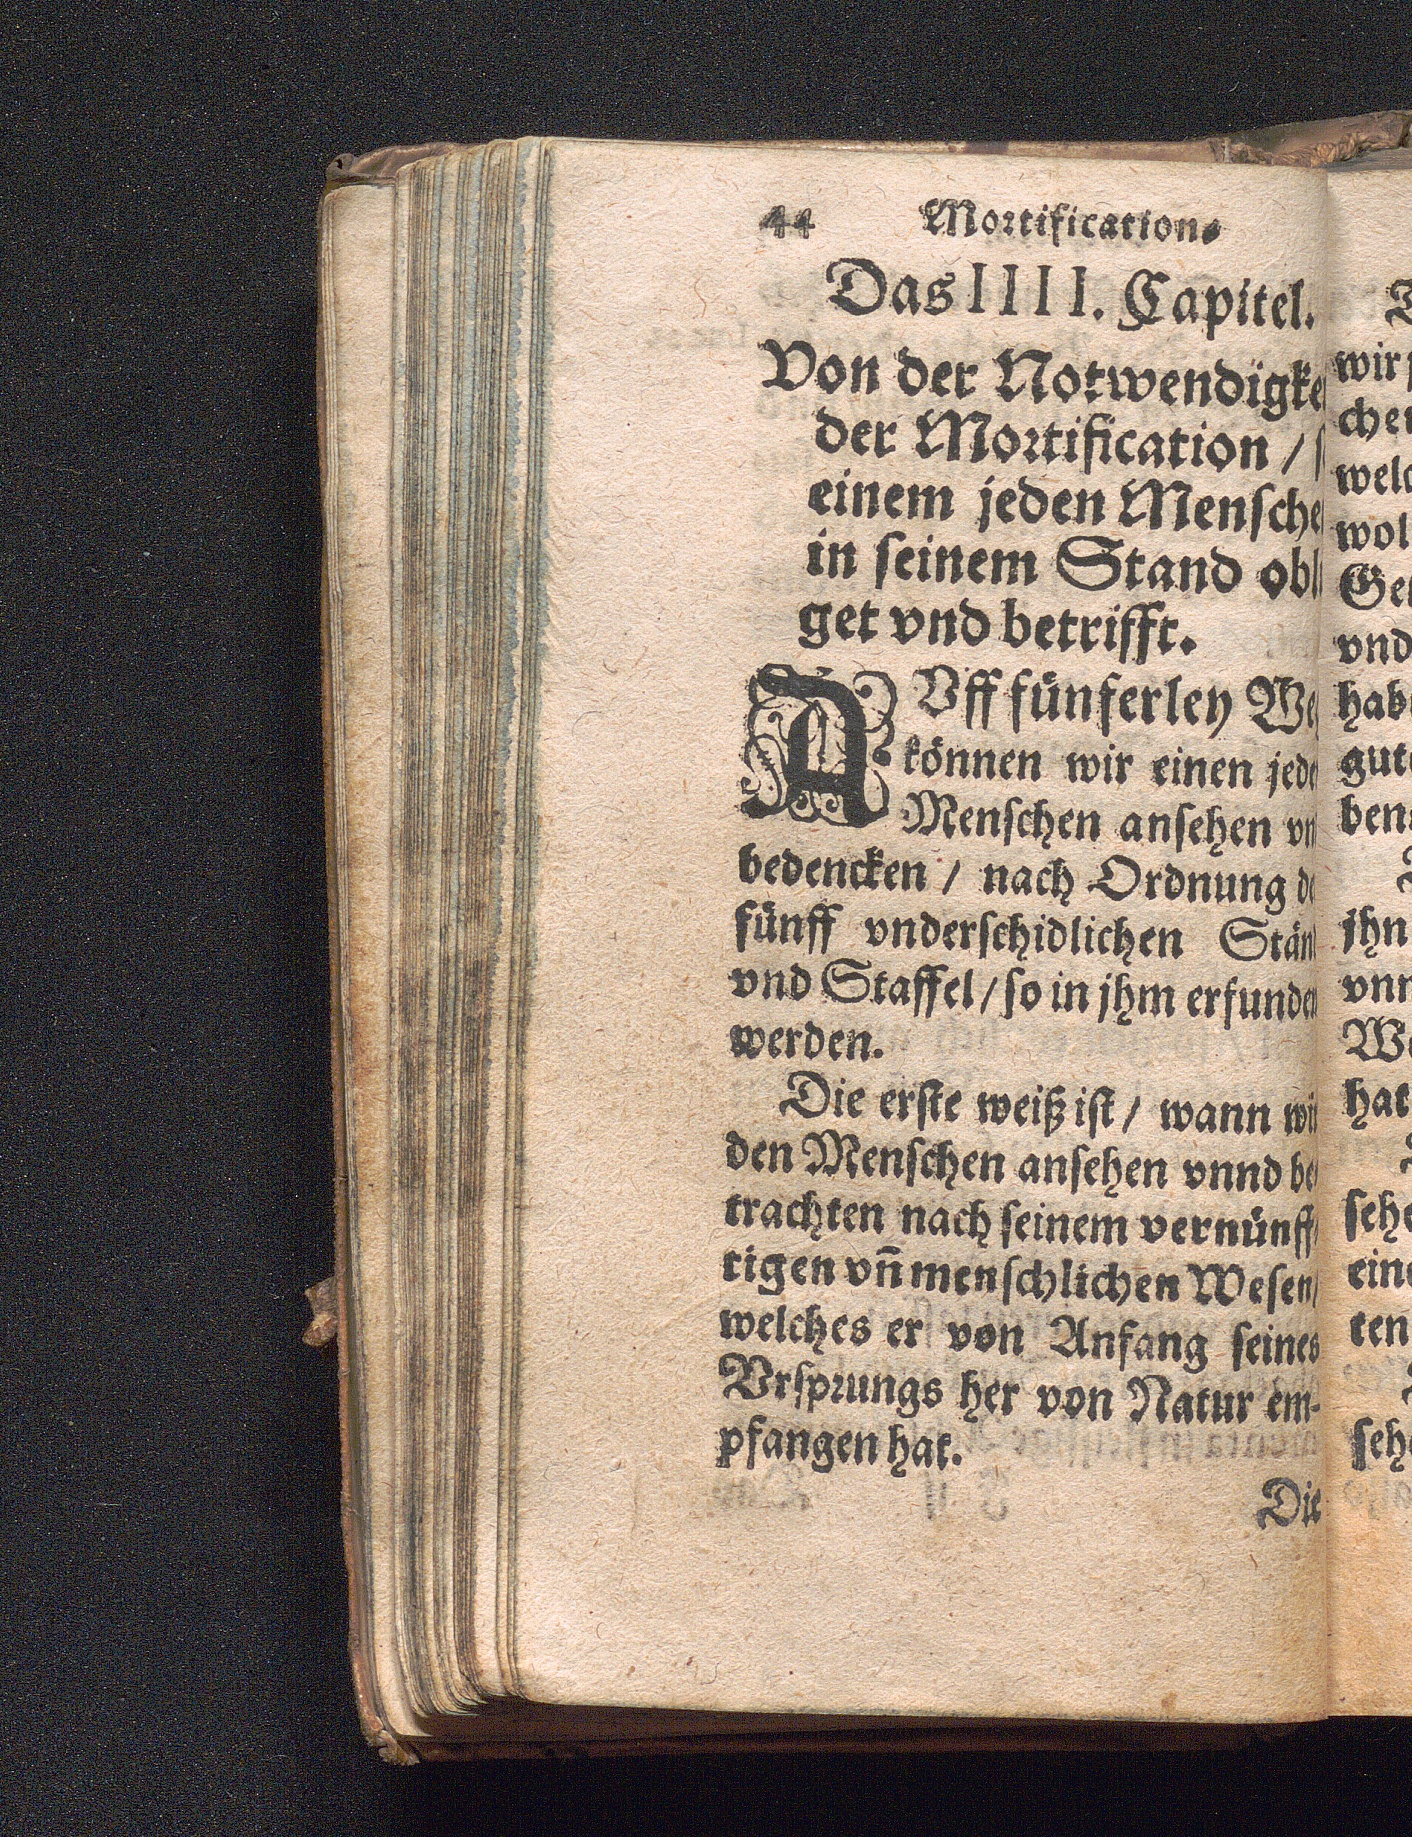 44 Mortification.
Das IIII. Capitel.
Von der Notwendigke
der Mortification /
einem jeden Mensche
in seinem Stand obl
get vnd betrifft.
AVff fünferley We
können wir einen jede
Menschen ansehen vn
bedencken / nach Ordnung de
fünff vnderschidlichen Stän
vnd Staffel / so in jhm erfunden
werden.
Die erste weiß ist / wann wir
den Menschen ansehen vnnd be
trachten nach seinem vernünff
tigen vñ menschlichen Wesen /
welches er von Anfang seines
Vrsprungs her von Natur em-
pfangen hat.
Die
wir
cher
welc
wol
Gei
vnd
hab
gute
ben
jhn
vnn
We
hat
sehe
eine
ten
sehe